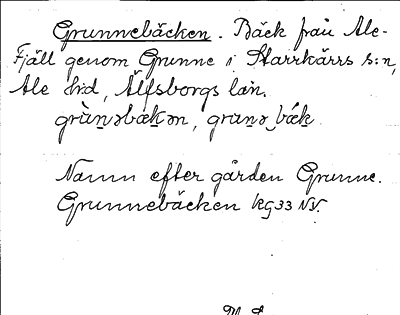 Grunnebäcken. Bäck från Ale-
Fjäll genom Grunne i Starrkärrs s:n,
Ale hd, Älfsborgs län.
grùn̠əbäk̠ən, grun̠ə_bák̠
Namn efter gården Grunne.
Grunnebäcken kg 33 NV.